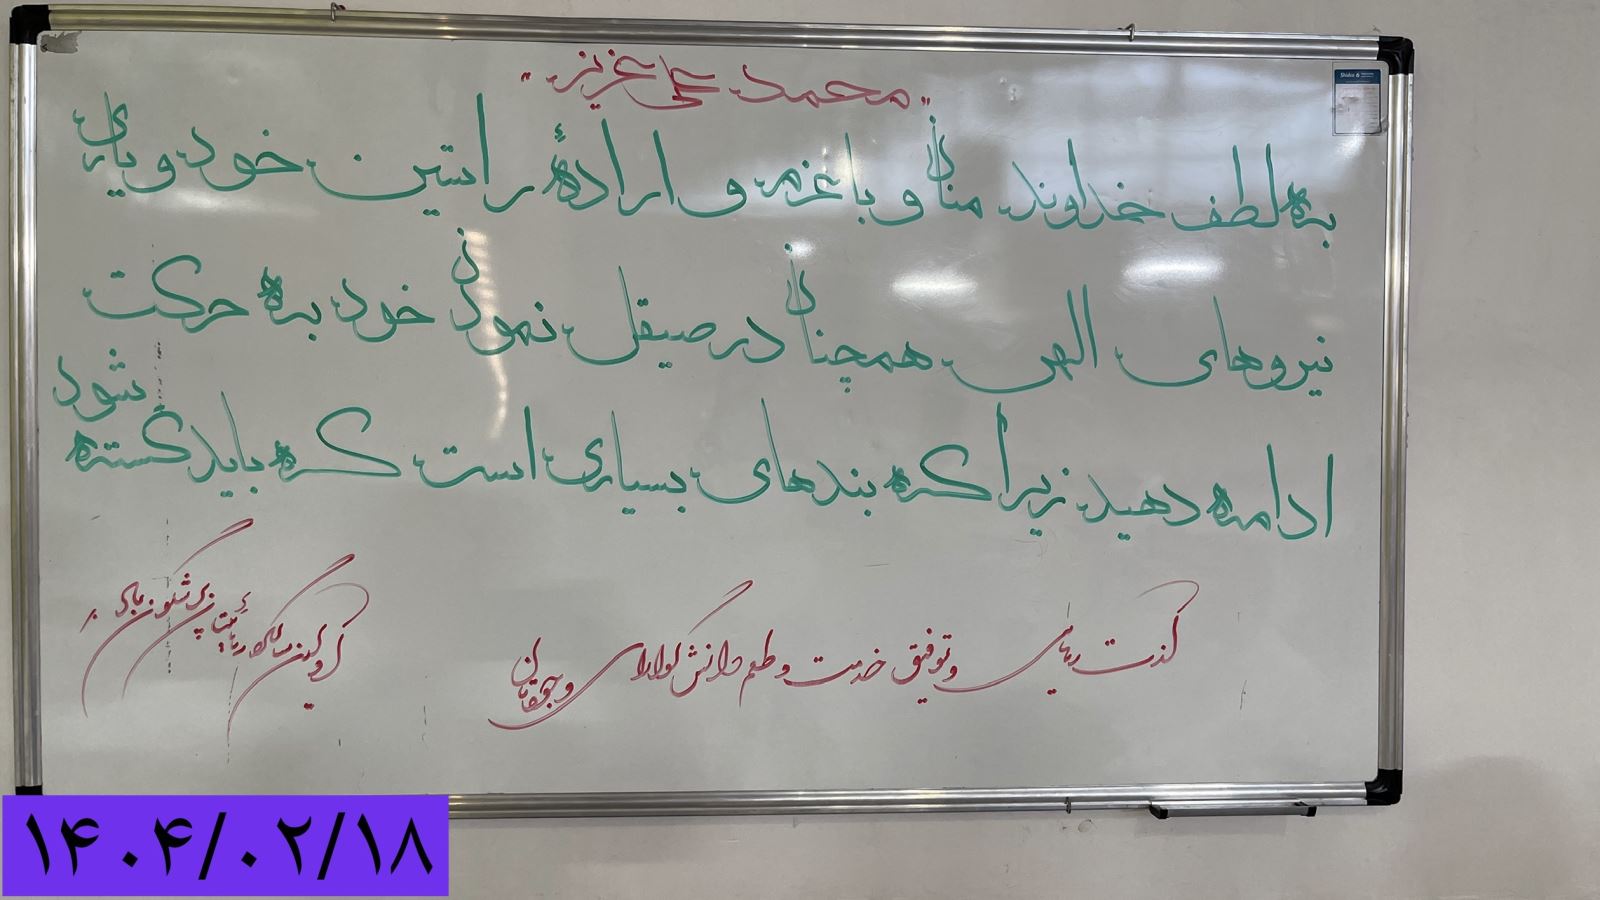 محمد علی عزیز
به لطف خداوند منان و با عزم و ارادهٔ راستین خود و یاری
نیروهای الهی همچنان در صیقل نمودن خود به حرکت
ادامه دهید زیرا که بندهای بسیاری است که باید گسسته شود
لذت رهایی و توفیق خدمت و طعم دانش گوارای وجودتان
اولین سالگرد رهاییتان پرشگون باد
۱۴۰۴/۰۲/۱۸